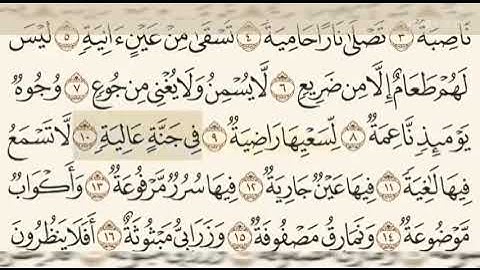 نَّاصِبَةٌ ٣ تَصْلَىٰ نَارًا حَامِيَةً ٤ تُسْقَىٰ مِنْ عَيْنٍ ءَانِيَةٍ ٥ لَّيْسَ
لَهُمْ طَعَامٌ إِلَّا مِن ضَرِيعٍ ٦ لَّا يُسْمِنُ وَلَا يُغْنِي مِن جُوعٍ ٧ وُجُوهٌ
يَوْمَئِذٍ نَّاعِمَةٌ ٨ لِّسَعْيِهَا رَاضِيَةٌ ٩ فِي جَنَّةٍ عَالِيَةٍ ١٠ لَّا تَسْمَعُ
فِيهَا لَٰغِيَةً ١١ فِيهَا عَيْنٌ جَارِيَةٌ ١٢ فِيهَا سُرُرٌ مَّرْفُوعَةٌ ١٣ وَأَكْوَابٌ
مَّوْضُوعَةٌ ١٤ وَنَمَارِقُ مَصْفُوفَةٌ ١٥ وَزَرَابِيُّ مَبْثُوثَةٌ ١٦ أَفَلَا يَنظُرُونَ